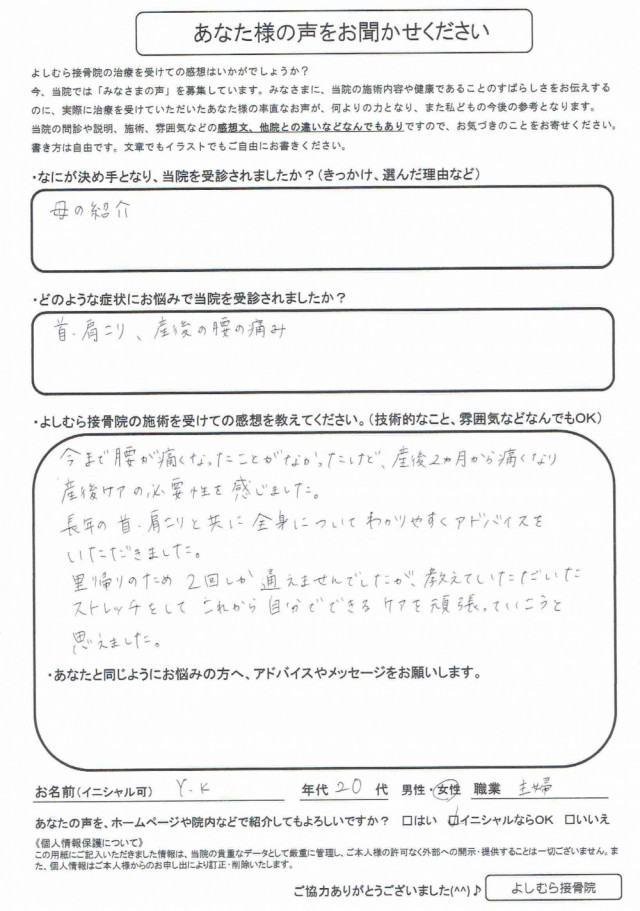 あなた様の声をお聞かせください
よしむら接骨院の治療を受けての感想はいかがでしょうか？
今、当院では「みなさまの声」を募集しています。みなさまに、当院の施術内容や健康であることのすばらしさをお伝えする
のに、実際に治療を受けていただいたあなた様の率直なお声が、何よりの力となり、また私どもの今後の参考となります。
当院の問診や説明、施術、雰囲気などの感想文、他院との違いなどなんでもありですので、お気づきのことをお寄せください。
書き方は自由です。文章でもイラストでもご自由にお書きください。
・なにが決め手となり、当院を受診されましたか？（きっかけ、選んだ理由など）
母の紹介
・どのような症状にお悩みで当院を受診されましたか？
首・肩こり、産後の腰の痛み
・よしむら接骨院の施術を受けての感想を教えてください。（技術的なこと、雰囲気などなんでもOK）
今まで腰が痛くなったことがなかったけど、産後2ヵ月から痛くなり
産後ケアの必要性を感じました。
長年の首・肩こりと共に全身についてわかりやすくアドバイスを
いただだきました。
里帰りのため2回しか通えませんでしたが、教えていただいた
ストレッチをしてこれから自分でできるケアを頑張っていこうと
思えました。
・あなたと同じようにお悩みの方へ、アドバイスやメッセージをお願いします。
お名前（イニシャル可） Y.K 年代 20 代 男性・女性 職業 主婦
あなたの声を、ホームページや院内などで紹介してもよろしいですか？ □はい ☑イニシャルならOK □いいえ
《個人情報保護について》
この用紙にご記入いただきました情報は、当院の貴重なデータとして厳重に管理し、ご本人様の許可なく外部への開示・提供することは一切ございません。ま
た、個人情報はご本人様からのお申し出により訂正・削除いたします。
ご協力ありがとうございました(^^)♪ よしむら接骨院